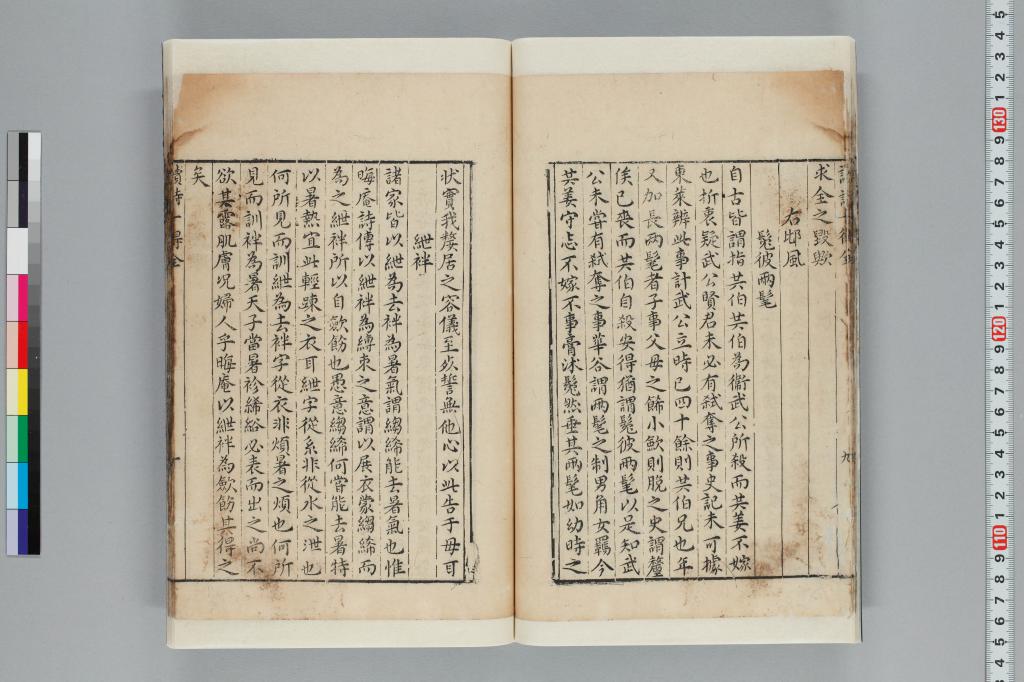 求全之毀歟
右邶風
髧彼兩髦
自古皆謂指共伯共伯為衛武公所殺而共姜不嫁
也折衷疑武公賢君未必有弑奪之事史記未可據
東萊辨此事計武公立時已四十餘則共伯兄也年
又加長兩髦者子事父母之飾小歛則脫之史謂釐
侯已喪而共伯自殺安得猶謂髧彼兩髦以是知武
公未嘗有弑奪之事華谷謂兩髦之制男角女羈今
共姜守志不嫁不事膏沐髧然垂其兩髦如幼時之
九
狀實我嫠居之容儀至死誓無他心以此告于母耳
紲袢
諸家皆以紲為去袢為暑氣謂縐絺能去暑氣也惟
晦庵詩傳以紲袢為縛束之意謂以展衣蒙縐絺而
為之紲袢所以自歛飭也愚意縐絺何嘗能去暑特
以暑熱宜此輕踈之衣耳紲字從糸非從水之泄也
何所見而訓紲為去袢字從衣非煩暑之煩也何所
見而訓袢為暑天子當暑袗絺綌必表而出之尚不
欲其露肌膚况婦人乎晦庵以紲袢為歛飭其得之
矣
讀詩一得全